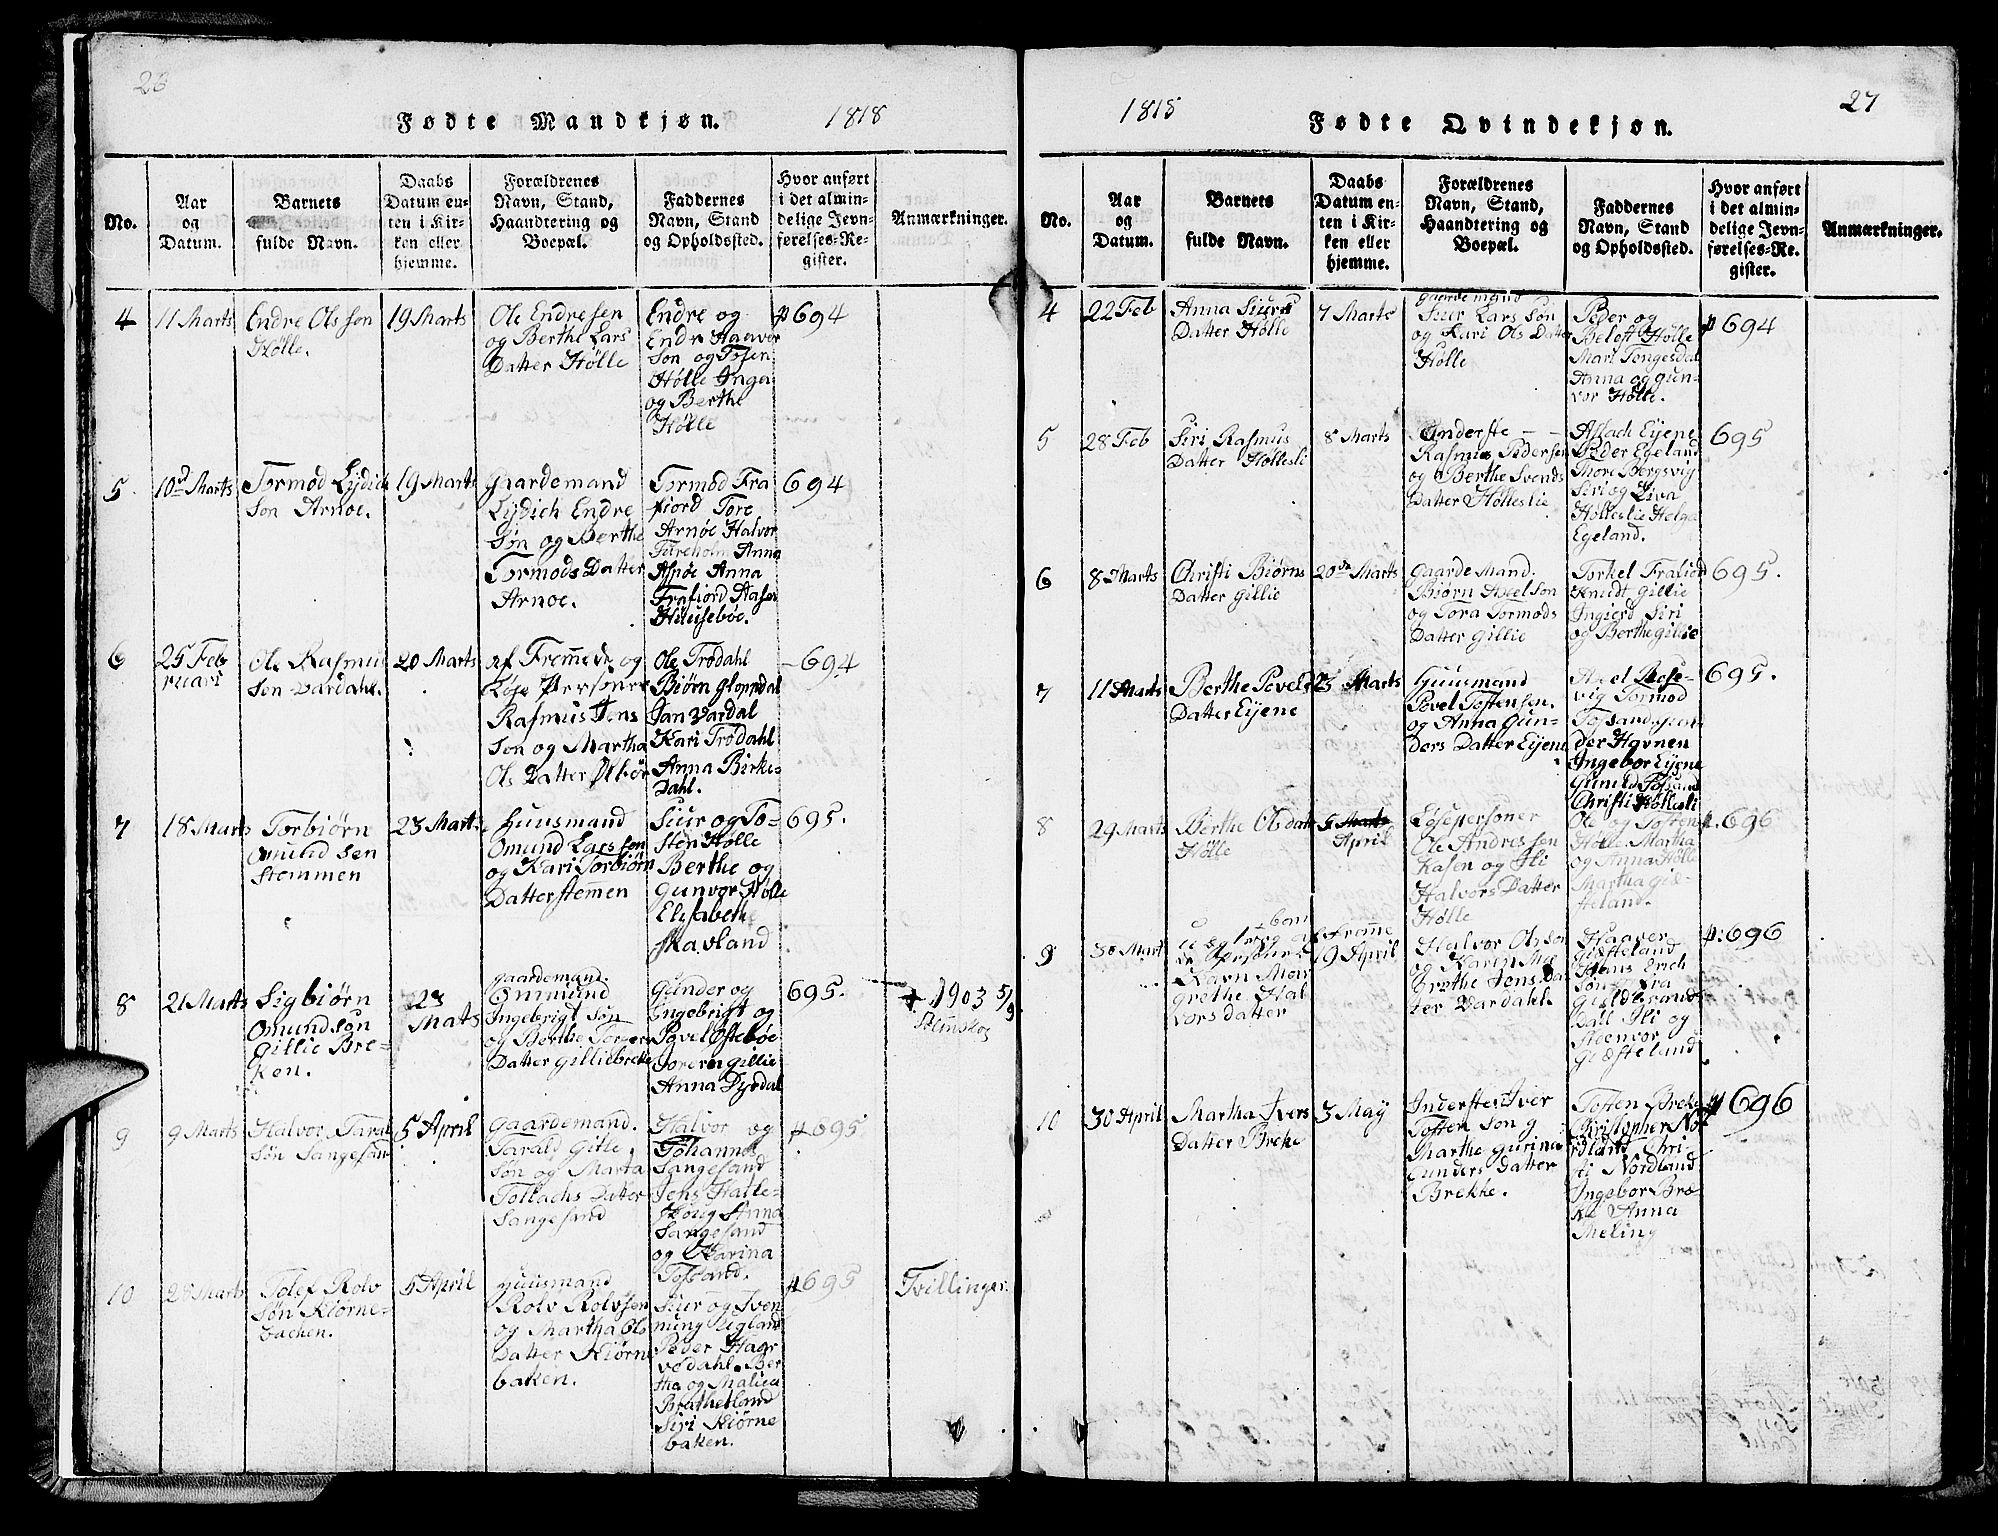 26
Fødte Mandkjøn.
1818
No.
Aar
og
Datum.
Barnets
fulde Navn.
Daabs
Datum en-
ten i Kir-
ken eller
hjemme.
Forældrenes
Navn, Stand,
Haandtering og
Boepæl.
Faddernes
Navn, Stand
og Opholdssted.
Hvor anført
i det almin-
delige Jevn-
førelses-Re-
gister.
Anmærkninger.
4
11 Marts
Endre Ols søn
Hølle.
19 Marts
Ole Endresen
og Berthe Lars
Datter Hølle
Endre og
Endr Haavor
Søn og Tosen
Hølle Inger
og Berthe
Hølle
p 694
5.
10de Marts
Tormod Lydich
Søn Arnøe.
19 Marts
Gaardemand
Lydich Endre
Søn og Berthe
Tormods Datter
Arnoe.
Tormod Fra
fiord Tore
Arnøe Halvor
Anna
Aspøe Anna
Frafiord Aasen
Huusebøe.
694
6
25 Feb
ruari
Ole Rasmus
Søn Vardahl.
20 Marts
af Fremmede og
Løse Personer
Rasmus Jens
Søn og Martha
Ols Datter
Ole Trodahl
Biørn Gloppdal
Jan Vardal
Kari Trodahl
Anna Birke-
Dahl.
694
7
18 Marts
Torbiørn
Omund Søn
Stemmen
23 Mart.
Huusmand
Omund Lars søn
og Kari Torbiørn
Datter Stemmen
Siur og To-
sten Hølle
Berthe og
Gunvor Hølle
Elisabethe
Skavland
695.
8
21 Marts
Sigbiørn
Omund søn
Gillie Bre-
ken.
23
Mats
gaardemand.
Ommund
Ingebrigt Søn
og Berthe Torger
Datter Gilliebrekke
Gunder og
Ingebrigt og
Povel Østebøe
Soren Gillie
Anna Dyrdal
695.
+ 1903 5/9
9
9 Marts
Halvor Taral
Søn Sangesand
5 April
Gaardemand.
Tarald Gitle
Søn og Marta
Tollachs Datter
Sangesand
Halvor og
Johanna
Sangesand
Jens Halle-
skoug Anna
Sangesand
og Karina
Tossand.
p 695
10
28 Marts
Tolef Rolv
Søn Kiørne-
bachen.
5 April
Huusmand
Rolv Rolvsen
og Martha Ols
Datter Kiørne
baken.
Siur og Sven
nung Ugland
Peder Haar
vedahl. Ber
tha og Malica
Brathetland
Siri Kiørne
baken.
p 695
Tvillinger.
1818
Fødte Qvindekjøn.
27
No.
Aar
og
Datum.
Barnets
fulde Navn.
Daabs
Datum en-
ten i Kir-
ken eller
hjemme.
Forældrenes
Navn, Stand,
Haandtering og
Boepæl.
Faddernes
Navn, Stand
og Opholdssted.
Hvor anført
i det almin-
delige Jevn-
førelses-Re-
gister.
Anmærkninger.
4
22 Feb
Anna Siurs
Datter Hølle
7 Marts
Gaardemand
Siur Lars Søn
og Kari Ols Datter
Hølle
Peder og
Belest Hølle
Mari Tongesdal
Anna og Gun-
vor Hølle.
p 694
5
28 Feb
Siri Rasmus
Datter Høllesli
8 Marts
Inderste
Rasmus Pedersen
og Berthe Svends
Datter Høllesslie
Aslach Eiene
Peder Egeland
Thore Bergsvig
Siri og Liva
Høllesslie Helga
Egeland.
695
6
8 Marts
Christi Biørns
Datter Gillie
20de Marts
Gaarde Mand.
Biørn Axelsøn
og Tora Tormods
Datter Gillie
Torkel Frafiord
Knudt Gillie
Ingierd Siri
og Berthe Gillie
695.
7
11 Marts
Berthe Povels
Datter Eiene
25 Marts
Huusmand
Povel Tostensen.
og Anna Gun-
ders Datter Eiene
Axel
vig Tormod
Tossand
der Havnen
Ingebor Eiene
Gunild Tossand
Christi Høllesli
695.
8
29 Marts
Berthe Olsdatr
Hølle
5 Marts
April
Løsepersoner
Ole Andres sen
Kasen og Eli
Halvors Datter
Hølle
Ole og Tosten
Hølle. Martha
og Anna Hølle
Martha Giæ-
Heland.
p. 696
9
30 Mart
Navn Mar
grethe Hal
vors datter
19 April
Halvor Ols søn
og Karen Ma
grethe Jens Da
ter Vardahl.
Haaver
Giesteland
Hans Erich
Søn fra
Guldbrands
Dall Eli og
Steenvor
Giæsteland
p. 696
10
30 April
Martha Ivers
Datter Breke
3 May
Inderste Iver
Tosten Søn og
Marthe Gurine
Gunders Datter
Brekke.
Tosten Breke
Christopher No
rdland Chri-
sti Nordland
Ingebor Bræ
ke Anna
Meling
p 696